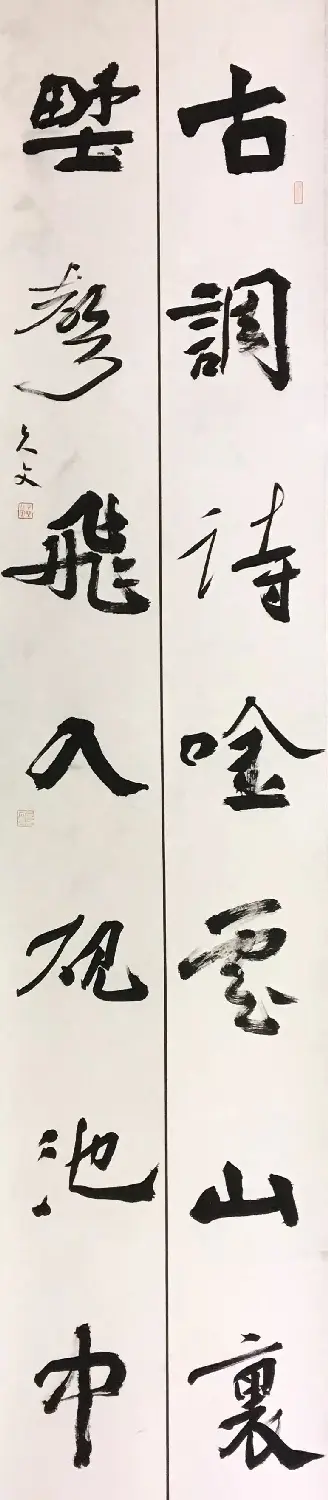 古調詩唫雲山裏
野聲飛入硯池中
久文